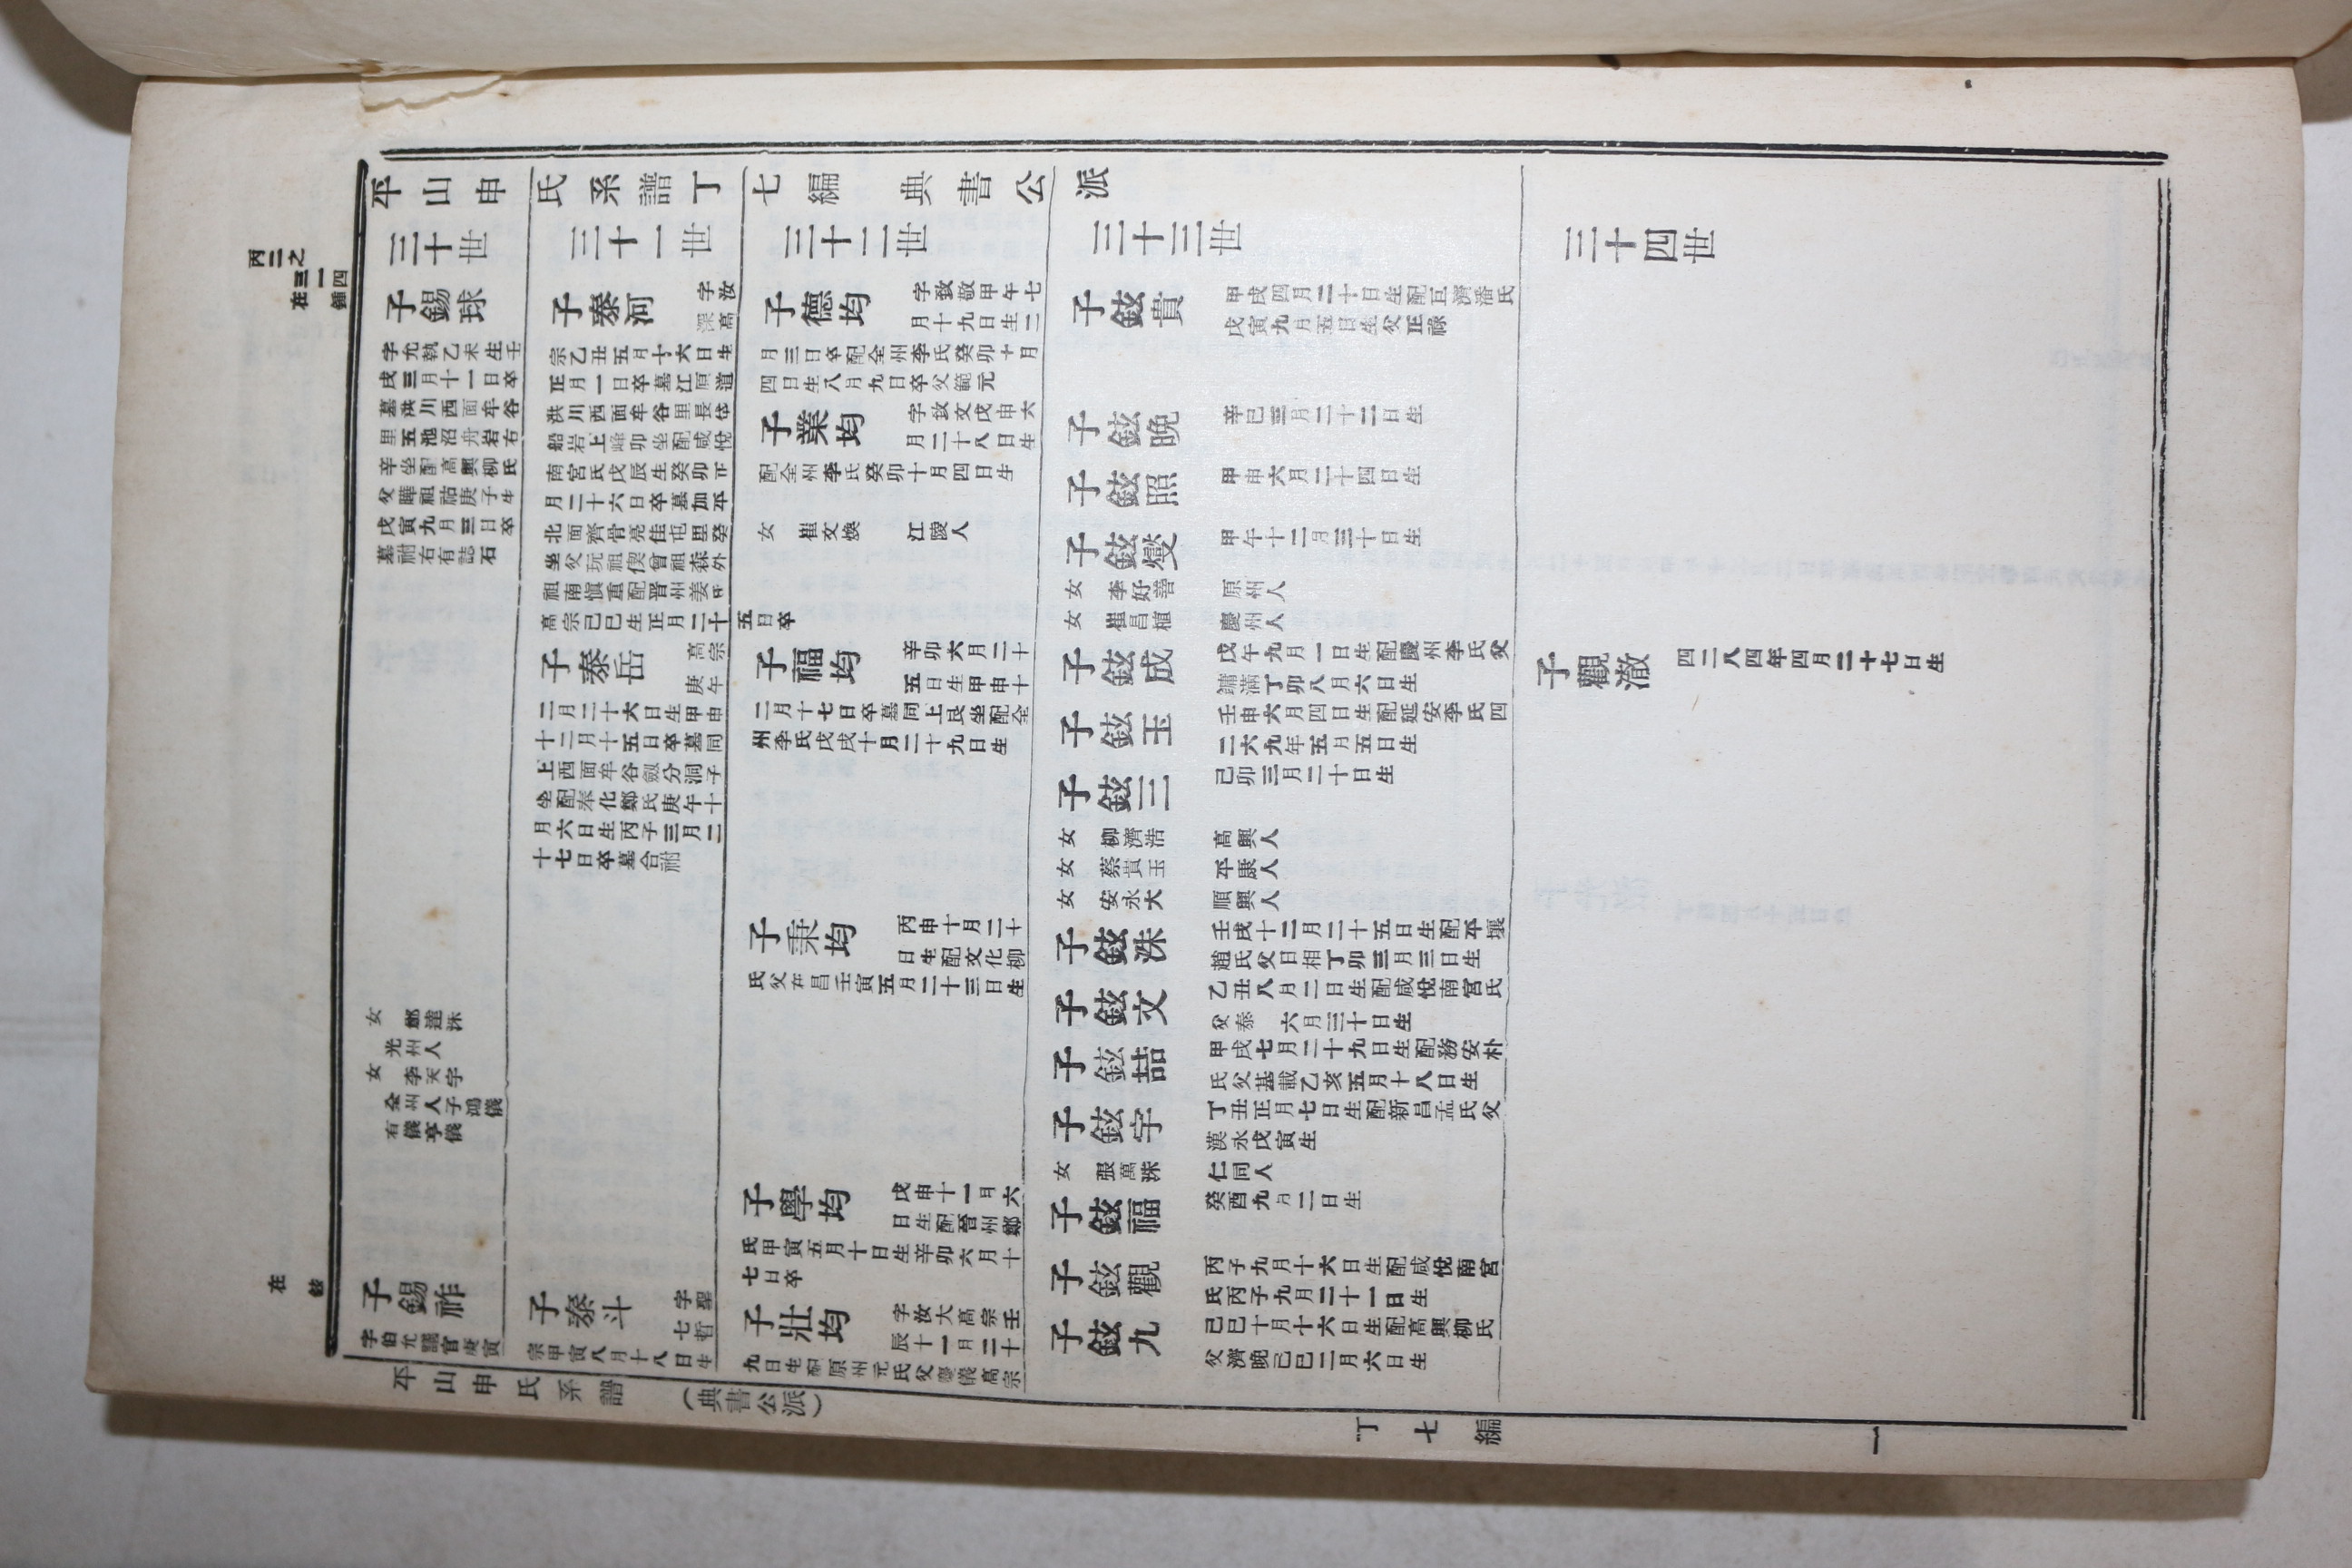 平山申氏系譜丁七編 典書公派
三十世
三十一世
三十二世
三十三世
三十四世
丙二之一四
在三
鍾
子錫球
字允執乙未生壬
戌三月十一日卒
墓洪川西面牟谷
里五池沼舟岩右
辛坐配高興柳氏
父 祖祐庚子生
戊寅九月三日卒
墓祔右有誌石
女 鄭達洙
光州人
女 李天宇
全州人子鴻儀
有儀亨儀
在
子錫祚
字伯允議官庚寅
子泰河
字汝
深高
宗乙丑五月十六日生
正月一日卒墓江原道
洪川西面牟谷里長垈
船岩上峰卯坐配咸悅
南宮氏戊辰生癸卯
月二十六日卒墓加平
北面齊骨亮佳屯里癸
坐父玩祖偰曾祖森外
祖南愼重配晋州姜
高宗己巳生正月二十五日卒
子泰岳
高宗
庚午
二月二十六日生甲申
十二月十五日卒墓同
上西面牟谷劔分洞子
坐配奉化鄭氏庚午十
月六日生丙子三月二
十七日卒墓合祔
子泰斗
字聖
七哲
宗甲寅八月十八日生
子德均
字敬甲午七
月十九日生二
月三日卒配全州李氏癸卯十月
四日生八月九日卒父範元
子業均
字文戊申六
月二十八日生
配全州李氏癸卯十月四日生
女 崔文煥 江陵人
子福均
辛卯六月二十
五日生甲申十
二月十七日卒墓同上艮坐配全
州李氏戊戌十月二十九日生
子秉均
丙申十月二十
日生配文化柳
氏父在昌壬寅五月二十三日生
子學均
戊申十一月六
日生配晉州鄭
氏甲寅五月十日生辛卯六月十
七日卒
子壯均
字汝大高宗壬
辰十一月二十
九日生配原州元氏父 儀高宗
子鉉貴
甲戌四月二十日生配巨濟潘氏
戊寅九月五日生父正祿
子鉉晩
辛巳三月二十二日生
子鉉照
甲申六月二十四日生
子鉉燮
甲午十二月三十日生
女 李好善 原州人
女 崔昌植 慶州人
子鉉成
戊午九月一日生配慶州李氏父
鏞滿丁卯八月六日生
子鉉玉
壬申六月四日生配延安李氏四
二六九年五月五日生
子鉉三
己卯三月二十日生
女 柳濟浩 高興人
女 蔡貴玉 平康人
女 安永大 順興人
子鉉洙
壬戌十二月二十五日生配平壤
趙氏父日相丁卯三月三日生
子鉉文
乙丑八月二日生配咸悅南宮氏
父泰 六月三十日生
子鉉喆
甲戌七月二十九日生配務安朴
氏父基載乙亥五月十八日生
子鉉宇
丁丑正月七日生配新昌孟氏父
漢永戊寅生
女 張萬洙 仁同人
子鉉福
癸酉九月二日生
子鉉觀
丙子九月十六日生配咸悅南宮
氏丙子九月二十一日生
子鉉九
己巳十月十六日生配高興柳氏
父濟晩己巳二月六日生
子觀澈
四二八四年四月二十七日生
平山申氏系譜
(典書公派)
丁七編
一